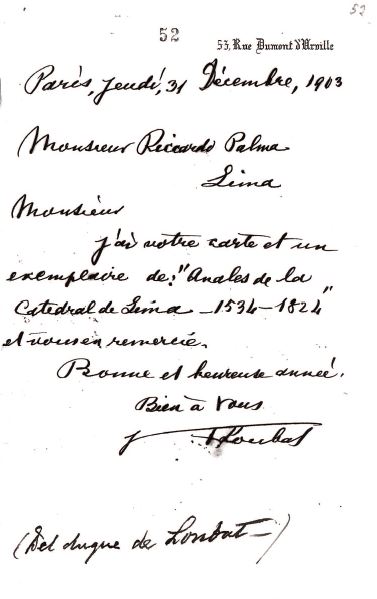 52
52
53, Rue Dumont d'Urville
Paris, Jeudi, 31 Décembre, 1903
Monsieur Ricardo Palma
Lima
Monsieur
j'ai votre carte et un
exemplaire de: "Anales de la
Catedral de Lima - 1534-1824"
et vous en remercie.
Bonne et heureuse année.
Bien à Vous
Loubat
(Del duque de Loubat-)